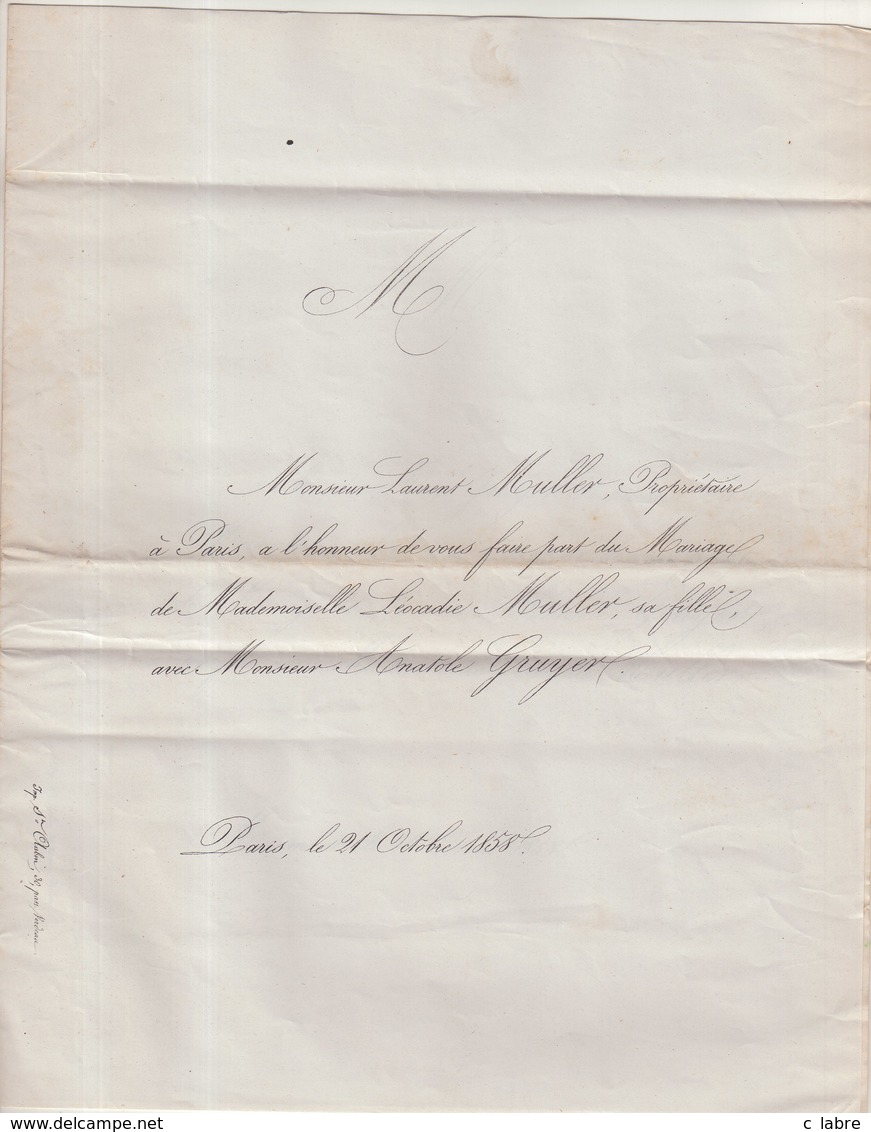 M
Monsieur Laurent Muller, Propriétaire
à Paris, a l'honneur de vous faire part du Mariage
de Mademoiselle Léocadie Muller, sa fille,
avec Monsieur Anatole Gruyer.
Paris, le 21 Octobre 1858.
Imp. St. Aubin, 30, pass. Vivienne
www.delcampe.net
c labre